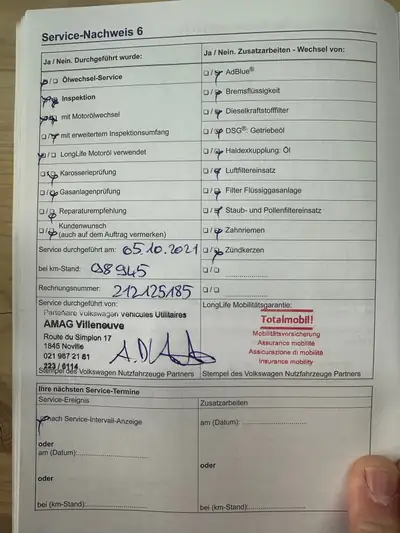 Service-Nachweis 6
Ja / Nein. Durchgeführt wurde:
Ölwechsel-Service
Inspektion
mit Motorölwechsel
mit erweitertem Inspektionsumfang
LongLife Motoröl verwendet
Karosserieprüfung
Gasanlagenprüfung
Reparaturempfehlung
Kundenwunsch
(auch auf dem Auftrag vermerken)
Service durchgeführt am: 05.10.2021
bei km-Stand: 98945
Rechnungsnummer: 212125185
Service durchgeführt von:
Partenaire Volkswagen Véhicules Utilitaires
AMAG Villeneuve
Route du Simplon 17
1845 Noville
021 967 21 81
223 / 0114
Stempel des Volkswagen Nutzfahrzeuge Partners
Ja / Nein. Zusatzarbeiten - Wechsel von:
AdBlue®
Bremsflüssigkeit
Dieselkraftstofffilter
DSG®: Getriebeöl
Haldexkupplung: Öl
Luftfiltereinsatz
Filter Flüssiggasanlage
Staub- und Pollenfiltereinsatz
Zahnriemen
Zündkerzen
LongLife Mobilitätsgarantie:
Totalmobil!
Mobilitätsversicherung
Assurance mobilité
Assicurazione di mobilità
Insurance mobility
Stempel des Volkswagen Nutzfahrzeuge Partners
Ihre nächsten Service-Termine
Service-Ereignis
nach Service-Intervall-Anzeige
oder
am (Datum):
oder
bei (km-Stand):
Zusatzarbeiten
am (Datum):
oder
bei (km-Stand):